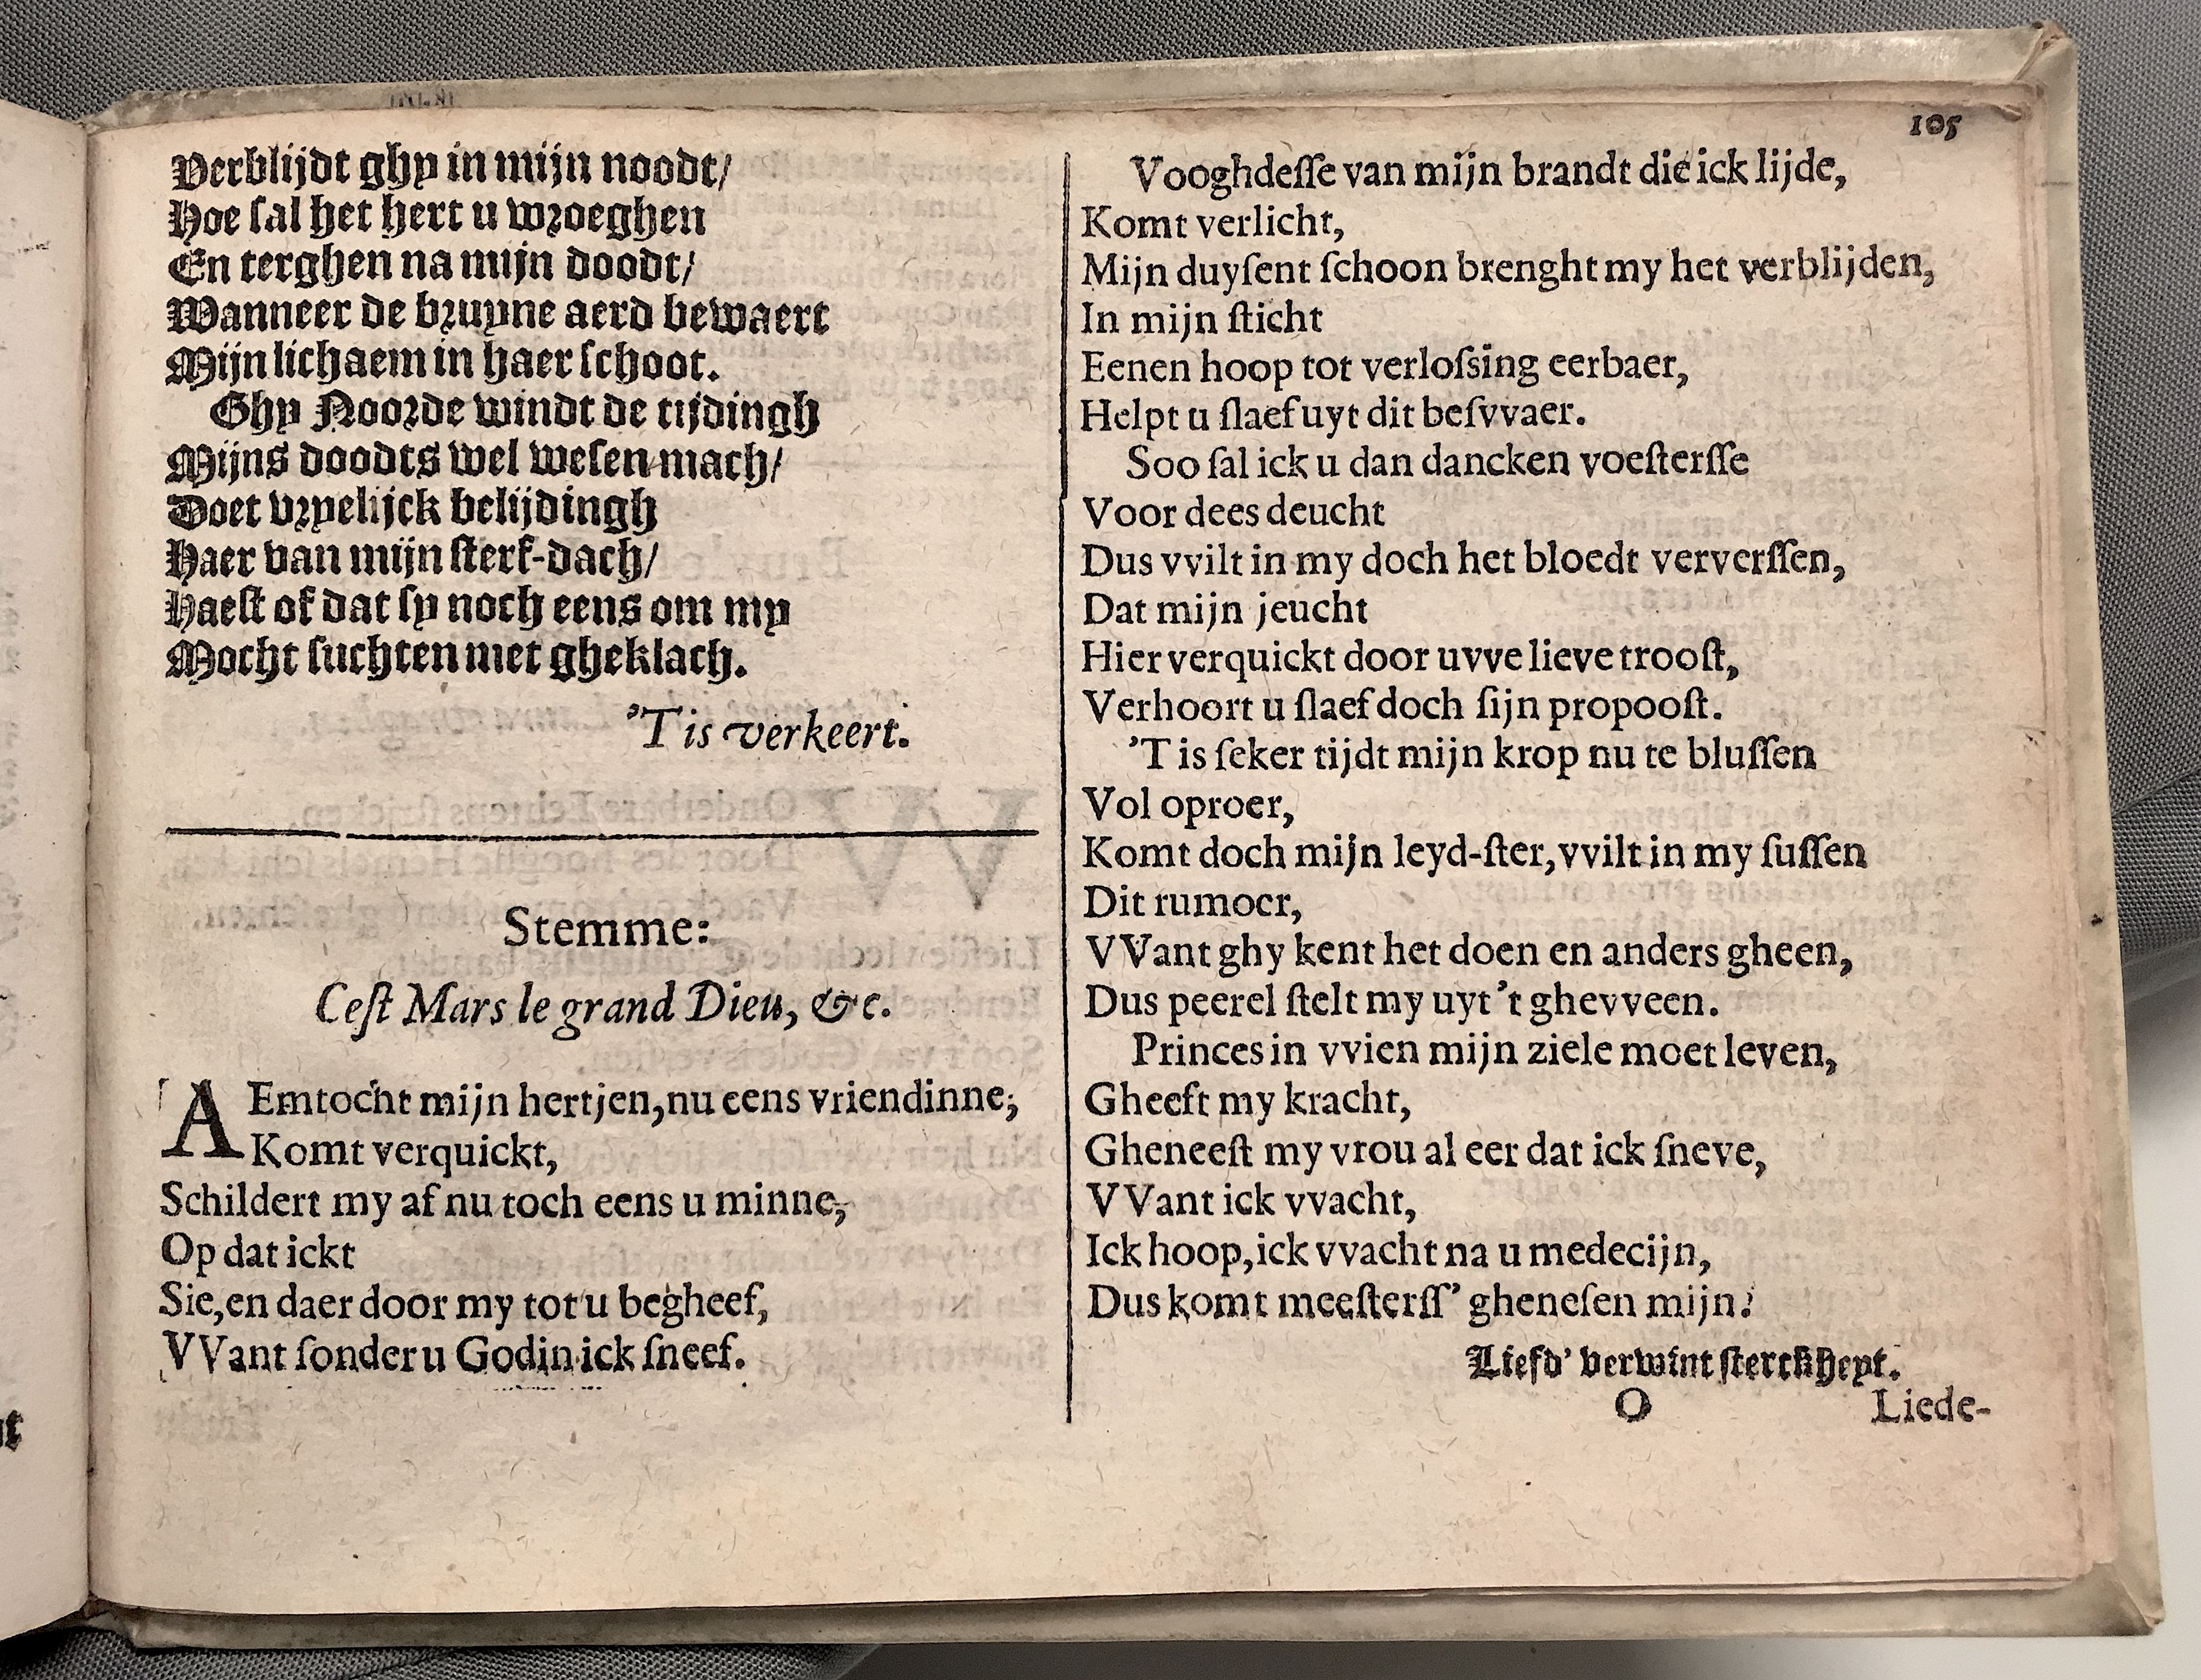 105
Verblijdt ghy in mijn noodt/
Hoe ſal het hert u wroeghen
En terghen na mijn doodt/
Wanneer de bruyne aerd bewaert
Mijn lichaem in haer ſchoot.
Ghy Noorde windt de tijdingh
Mijns doodts wel weſen mach/
Doet vryelijck belijdingh
Haer van mijn ſterf-dach/
Haeſt of dat ſy noch eens om my
Mocht ſuchten met gheklach.
'T is verkeert.
Stemme:
Ceſt Mars le grand Dieu, &c.
AEmtocht mijn hertjen, nu eens vriendinne,
Komt verquickt,
Schildert my af nu toch eens u minne,
Op dat ickt
Sie, en daer door my tot u begheef,
VVant ſonder u Godin ick ſneef.
Vooghdeſſe van mijn brandt die ick lijde,
Komt verlicht,
Mijn duyſent ſchoon brenght my het verblijden,
In mijn ſticht
Eenen hoop tot verloſsing eerbaer,
Helpt u ſlaef uyt dit beſvvaer.
Soo ſal ick u dan dancken voeſterſſe
Voor dees deucht
Dus vvilt in my doch het bloedt ververſſen,
Dat mijn jeucht
Hier verquickt door uvve lieve trooſt,
Verhoort u ſlaef doch ſijn propooſt.
'T is ſeker tijdt mijn krop nu te bluſſen
Vol oproer,
Komt doch mijn leyd-ſter, vvilt in my ſuſſen
Dit rumoer,
VVant ghy kent het doen en anders gheen,
Dus peerel ſtelt my uyt 't ghevveen.
Princes in vvien mijn ziele moet leven,
Gheeft my kracht,
Gheneeſt my vrou al eer dat ick ſneve,
VVant ick vvacht,
Ick hoop, ick vvacht na u medecijn,
Dus komt meeſterſſ' gheneſen mijn.
Liefd' verwint ſterckheyt.
O Liede-